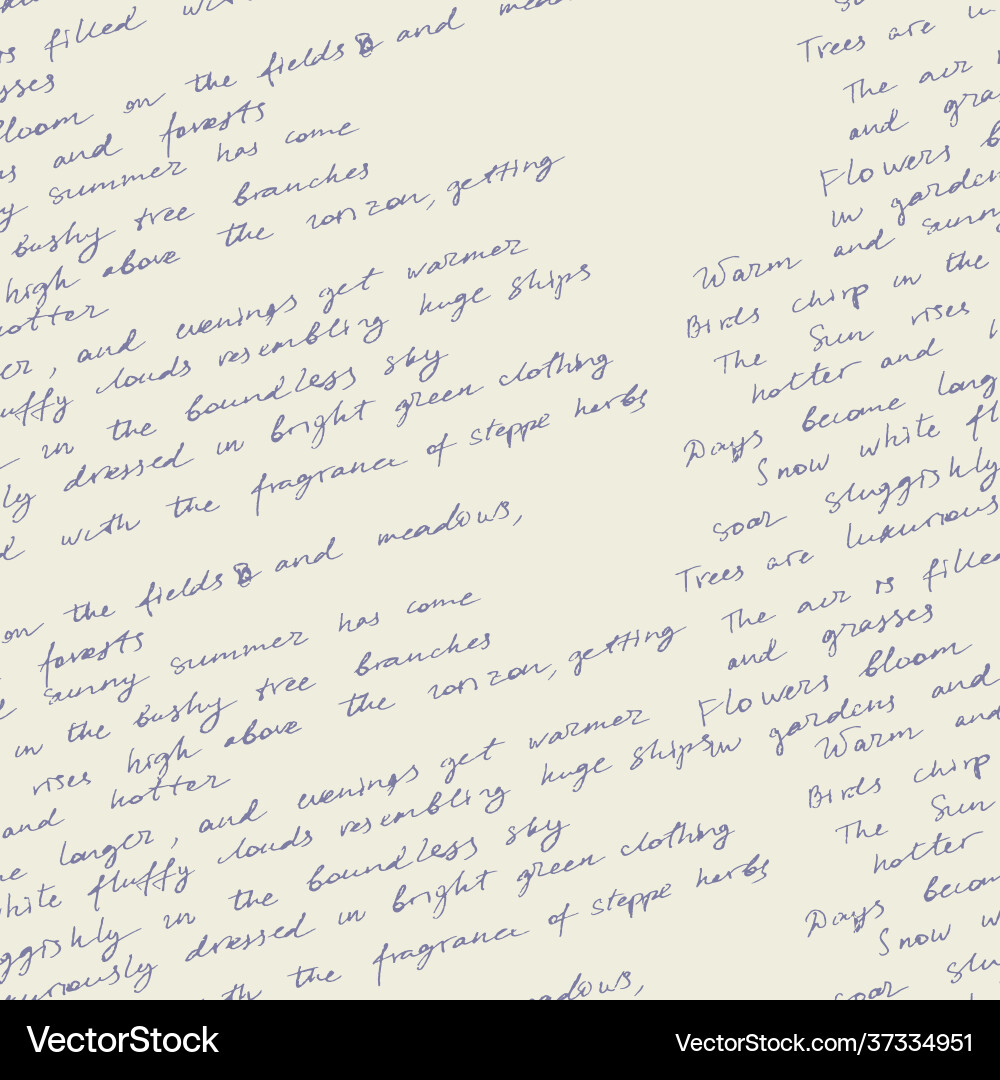 filled
on the fields and
and forests
summer has come
bushy tree branches
high above the horizon, getting
hotter
, and evenings get warmer
clouds resembling huge ships
in the boundless sky
dressed in bright green clothing
with the fragrance of steppe herbs
on the fields and meadows,
forests
sunny summer has come
in the bushy tree branches
rises high above the horizon, getting
and hotter
longer, and evenings get warmer
white fluffy clouds resembling huge ships
in the boundless sky
dressed in bright green clothing
the fragrance of steppe herbs
Trees are
The air
and
Flowers
in gardens
and sunny
Warm
Birds chirp in the
The Sun rises
hotter and
Days become long
Snow white
soar sluggishly
Trees are luxurious
The air is filled
and grasses
Flowers bloom
in gardens and
Warm and
Birds chirp
The Sun
hotter
Days
Snow
soar
VectorStock
VectorStock.com/37334951